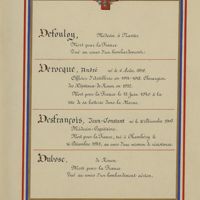 Defouloy, Médecin à Nantes
Mort pour la France
Tué au cours d'un bombardement.
Derocque, André né le
Officier d'Artillerie en 1914-1918. Chirurgien
des Hôpitaux de Rouen en
Mort pour la France le 11 Juin 1940 à la
tête de sa batterie dans la Marne.
Desfrançois, Jean-Constant né le
Médecin-Capitaine.
Mort pour la France, tué à Chambéry le
Décembre au cours d'une mission de résistance.
Dubosc, de Rouen,
Mort pour la France
Tué au cours d'un bombardement aérien.